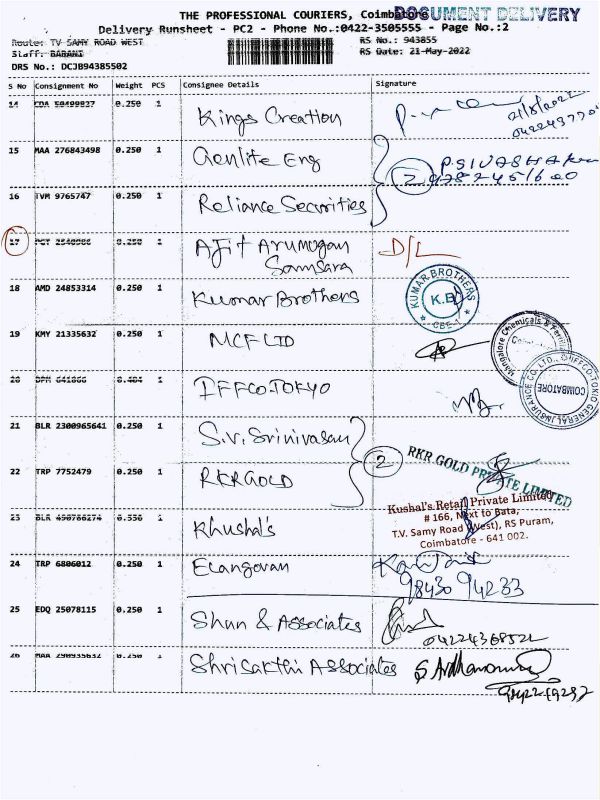 THE PROFESSIONAL COURIERS, Coimbatore
DOCUMENT DELIVERY
Delivery Runsheet - PC2 - Phone No.:0422-3505555 - Page No.:2
Route: TV SAMY ROAD WEST
RS No.: 943855
Staff: BARANI
RS Date: 21-May-2022
DRS No.: DCJB94385502
S No Consignment No Weight PCS Consignee Details Signature
14 0.250 1 Kings Creation
15 MAA 276843498 0.250 1 Genlite Eng
2
16 TVM 9765747 0.250 1 Reliance Securities
17 0.250 1 Ajit Arumugan D/L
Samsara
18 AMD 24853314 0.250 1 Kumar Brothers
KUMAR BROTHERS
K.B
CBE-1
19 KMY 21335632 0.250 1 MCF LTD
Mangalore Chemicals &
20 1 IFFCO.TOKYO
IFFCO-TOKIO GENERAL INSURANCE CO LTD.,
COIMBATORE
21 BLR 2300965641 0.250 1 S.V. Srinivasan
2
22 TRP 7752479 0.250 1 RKR GOLD
RKR GOLD PRIVATE LIMITED
23 BLR 490786274 0.536 1 Khushal's
Kushal's Retail Private Limited
# 166, Next to Bata,
T.V. Samy Road (West), RS Puram,
Coimbatore - 641 002.
24 TRP 6806012 0.250 1 Elangovan
98430 94233
25 EDQ 25078115 0.250 1 Shun & Associates
26 MAA 290935632 0.250 1 Shrisakthi Associates